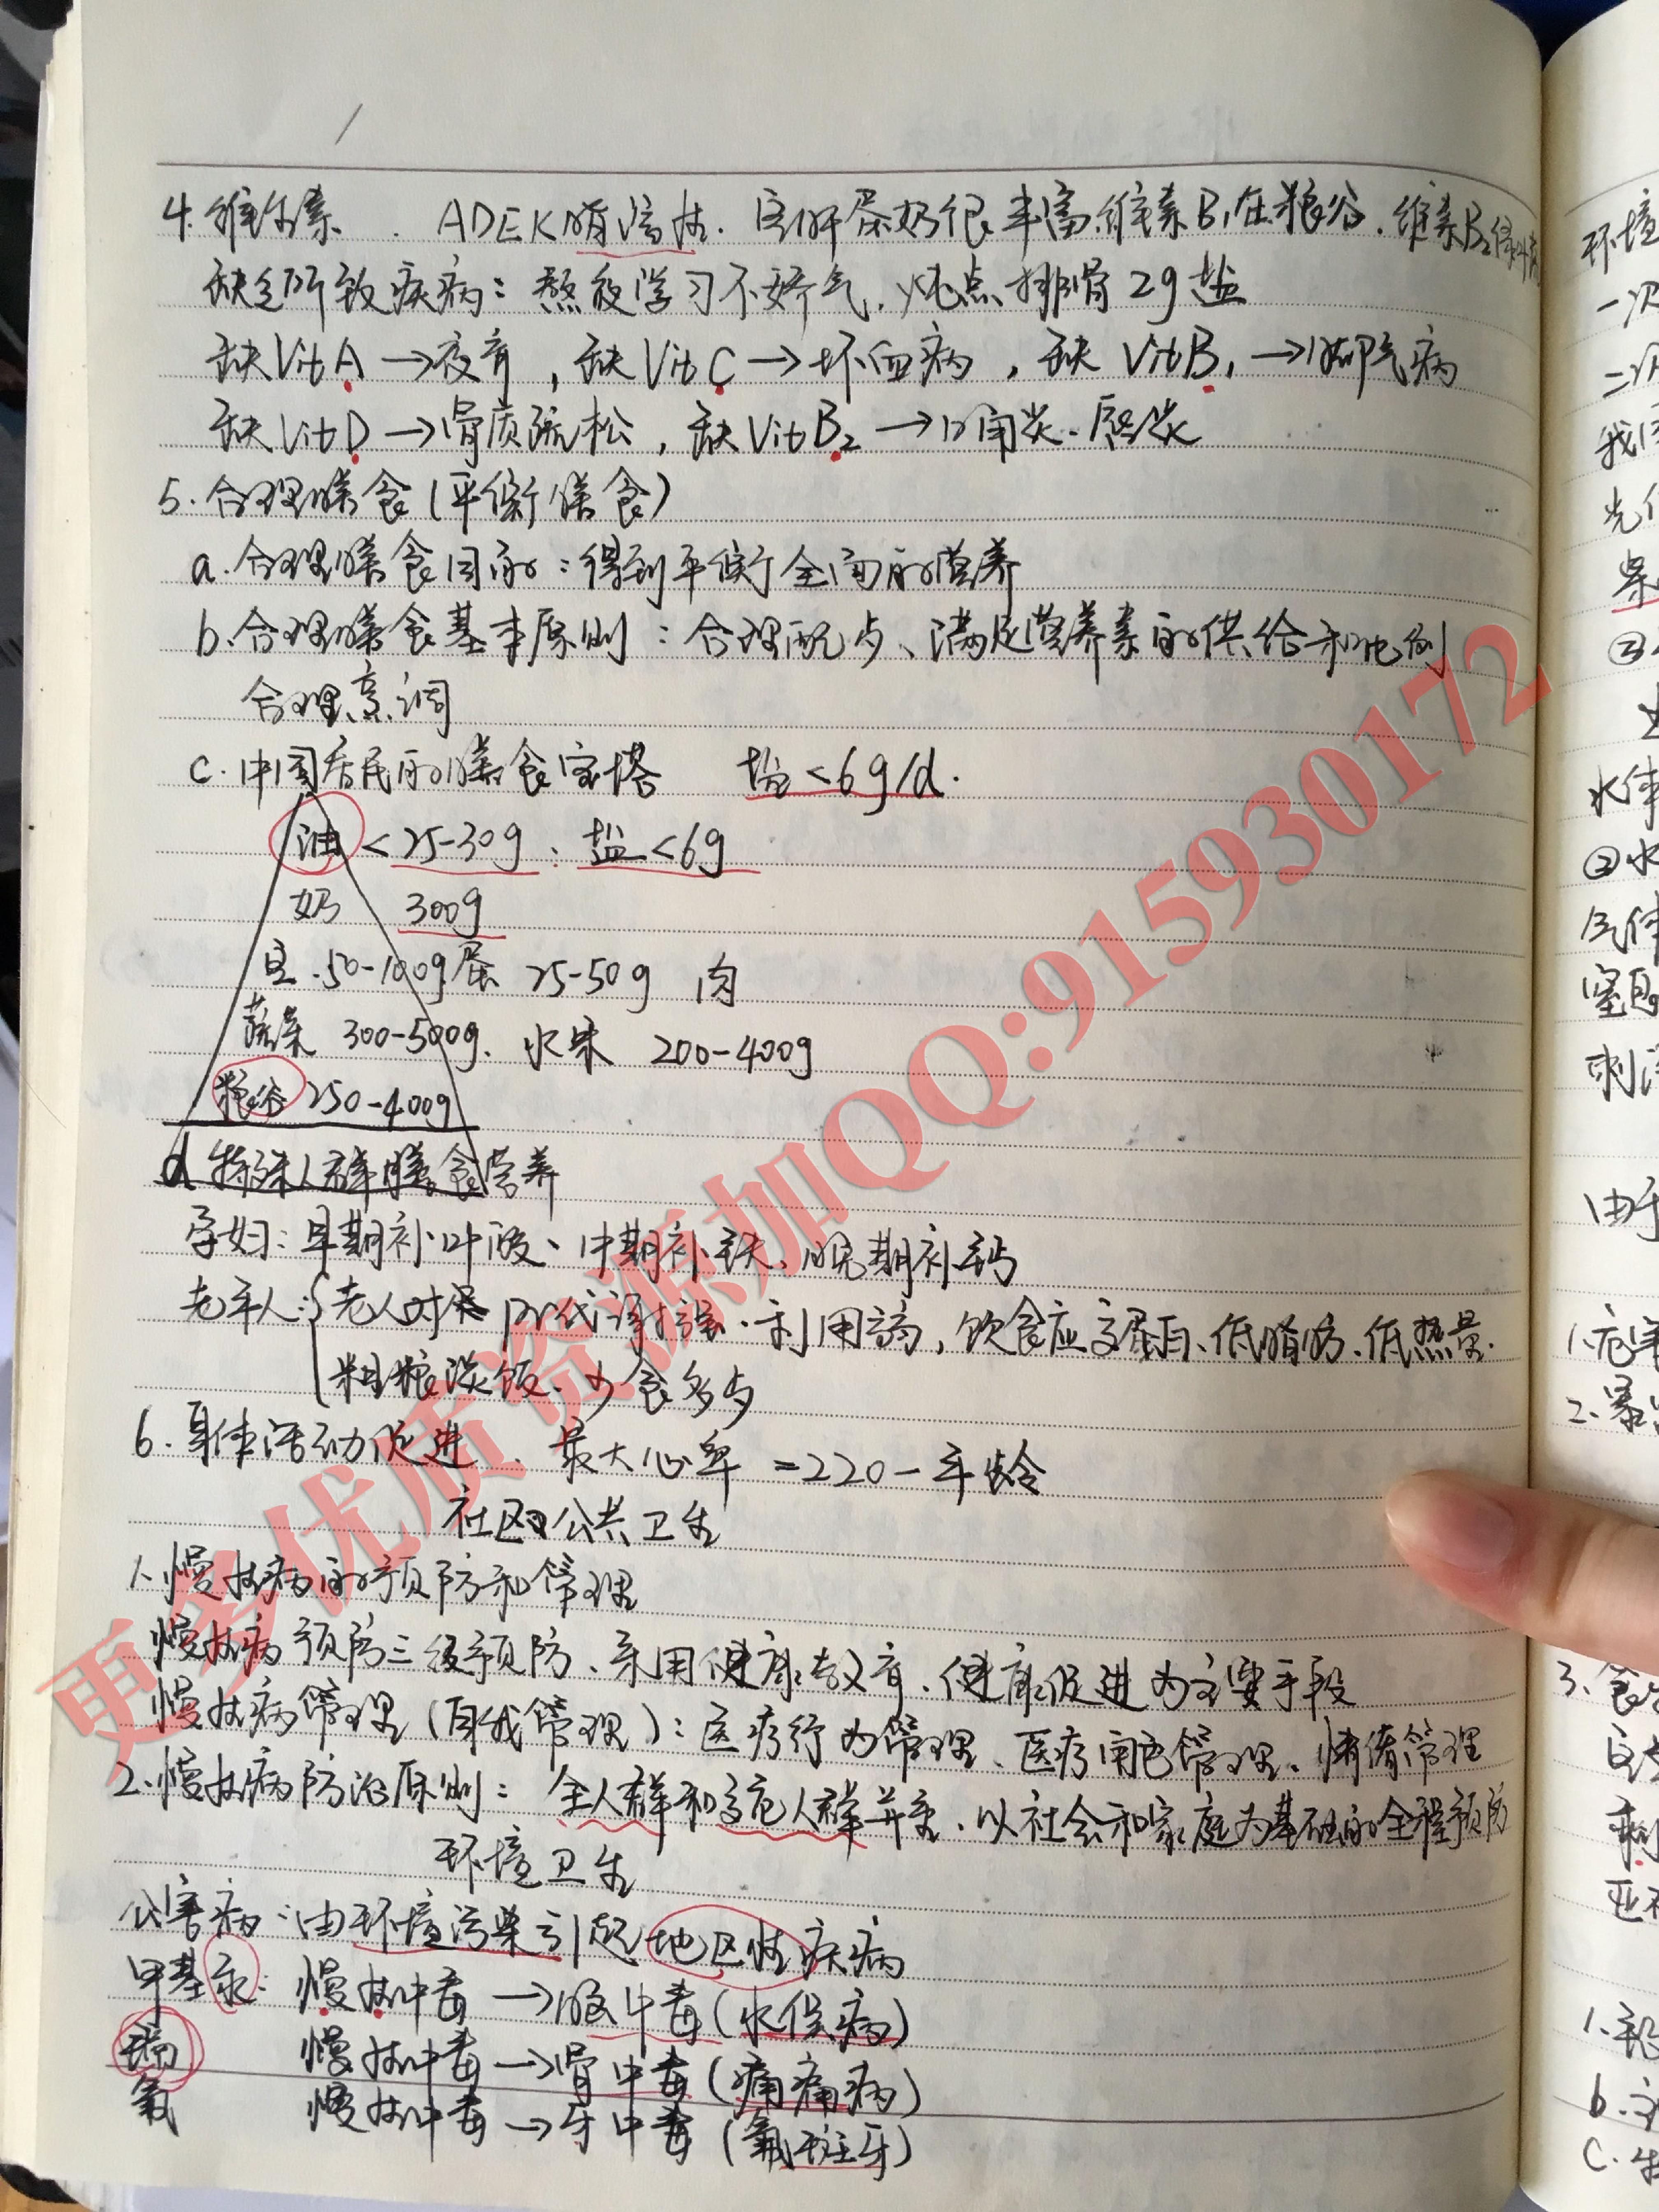 4.维生素. ADEK脂溶性. 在肝蛋奶很丰富.维素B1在粮谷.维素B2绿叶
缺乏所致疾病: 熬夜学习不娇气,炖点排骨2g盐
缺VitA→夜盲, 缺VitC→坏血病, 缺VitB1→脚气病
缺VitD→骨质疏松, 缺VitB2→口角炎.唇炎
5.合理膳食(平衡膳食)
a.合理膳食目的:得到平衡全面的营养
b.合理膳食基本原则:合理配、满足营养素的供给和比例
合理烹调
c.中国居民的膳食宝塔 盐<6g/d.
油<25-30g、盐<6g
奶 300g
豆.50-100g.蛋 25-50g 肉
蔬菜 300-500g. 水果 200-400g
粮谷 250-400g
d 特殊人群膳食营养
孕妇:早期补叶酸、中期补铁、晚期补钙
老年人:老人对代谢强.利用,饮食应高蛋白、低脂肪、低热量.
粗粮淡饭、少食多
6.身体活动促进. 最大心率=220-年龄
社区公共卫生
1.慢性病的预防和管理
慢性病预防三级预防、采用健康教育、健康促进为主要手段
慢性病管理(自我管理):医疗行为管理、医疗角色管理、情绪管理
2.慢性病防治原则: 全人群和高危人群并重.以社会和家庭为基础的全程预防
环境卫生
公害病:由环境污染引起地区性疾病
甲基汞: 慢性中毒→脑中毒(水俣病)
镉 慢性中毒→骨中毒(痛痛病)
氟 慢性中毒→牙中毒(氟斑牙)
更多优质资源加QQ:915930172
环境
一次
二次
我国
光化
③
水体
②水
气体
刺激
由于
1.危害
2.暴
3.食
1.
b.
C.